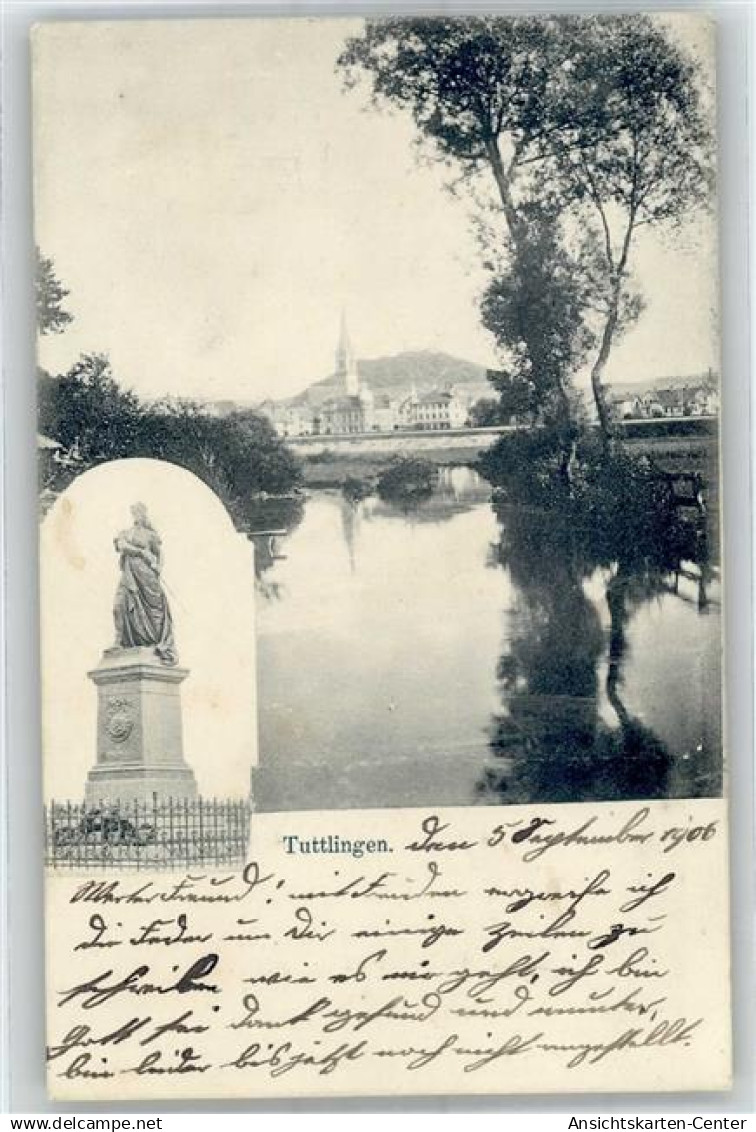 Tuttlingen. den 5 September 1906
Werter Freund! mit Freuden ergreife ich
die Feder um Dir einige Zeilen zu
schreiben wie es mir geht, ich bin
Gott sei dank gesund und munter,
bin leider bis jetzt noch nicht angestellt.
Ansichtskarten-Center